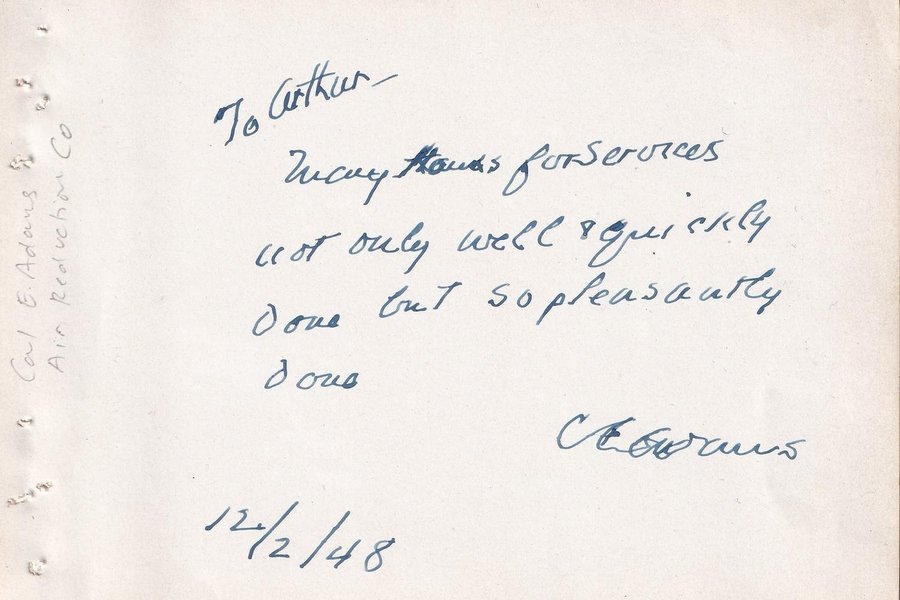 To Arthur—
Many thanks for services
not only well & quickly
done but so pleasantly
done
C E Adams
12/2/48
Cal E. Adams
Air Reduction Co